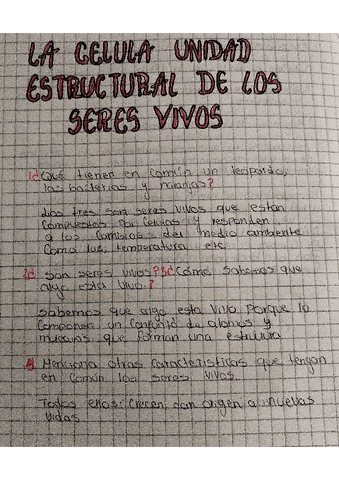 LA CELULA UNIDAD
ESTRUCTURAL DE LOS
SERES VIVOS
1¿ Qué tienen en común un leopardo,
las bacterias y naranjas?
Los tres son seres vivos que estan
compuestos por celulas y responden
a los cambios del medio ambiente
como luz, temperatura etc
2¿ son seres vivos? 3¿Cómo sabemos que
algo está vivo.?
Sabemos que algo esta vivo porque lo
componen un conjunto de atomos y
que forman una estructura
4) Menciona otras caracteristicas que tengan
en común los seres vivos
Todos ellos: crecen, dan origen a nuevas
vidas